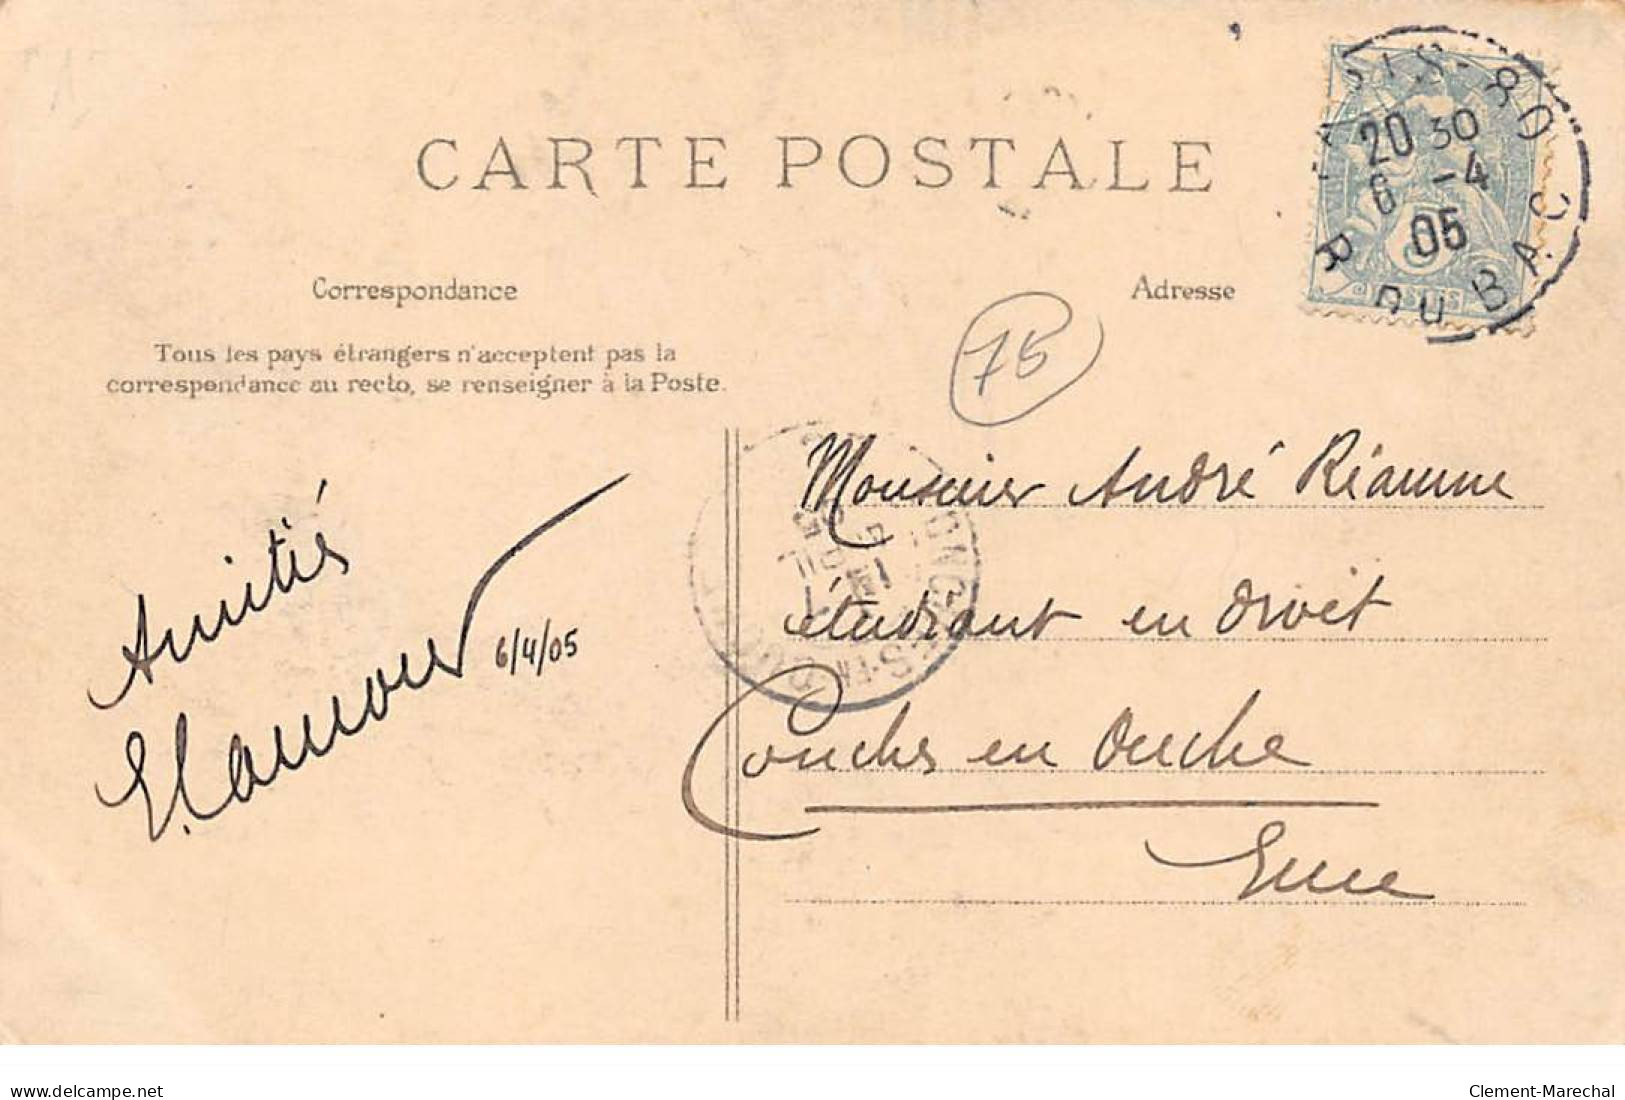 CARTE POSTALE
Correspondance
Adresse
Tous les pays étrangers n'acceptent pas la
correspondance au recto, se renseigner à la Poste.
PARIS-80
20 30
6 -4
05
R. DU BAC
5
POSTES
75
Monsieur André Réaume
étudiant en droit
Conches en Ouche
Eure
Amitiés
6/4/05
delcampe.net
Clement-Marechal